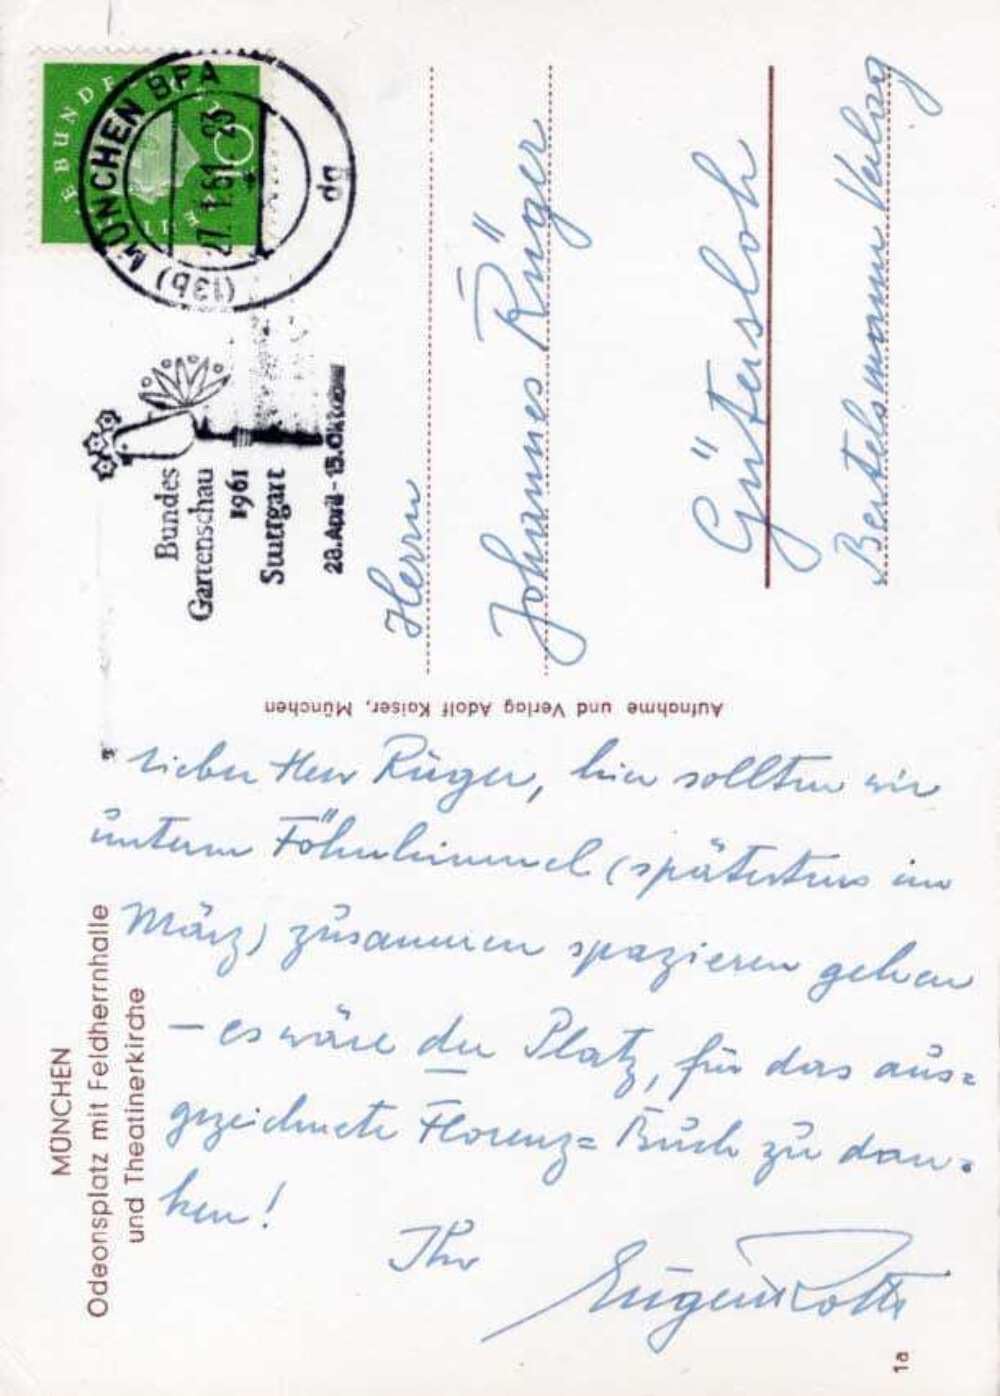 DEUTSCHE BUNDESPOST
10
(13b) MÜNCHEN BPA
27.1.61-23
dg
Bundes
Gartenschau
1961
Stuttgart
28.April-15.Oktober
Herrn
Johannes Rüger
Gütersloh
Bertelsmann Verlag
Aufnahme und Verlag Adolf Kaiser, München
MÜNCHEN
Odeonsplatz mit Feldherrnhalle
und Theatinerkirche
Lieber Herr Rüger, hier sollten wir
unterm Föhnhimmel (spätestens im
März) zusammen spazieren gehen
– es wäre der Platz, für das aus=
gezeichnete Florenz=Buch zu dan=
ken!
Ihr
Eugen Roth
1a